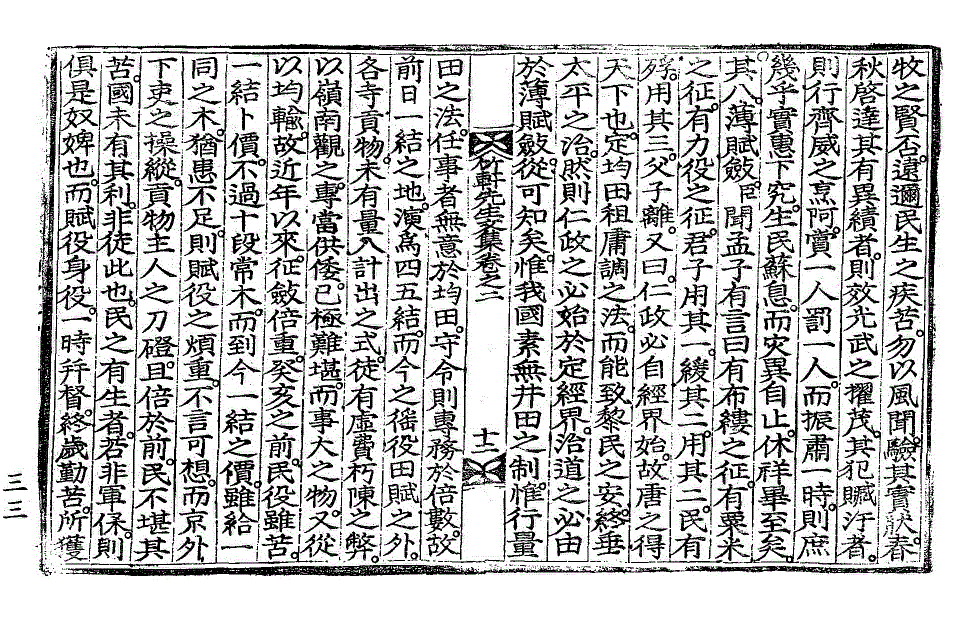 牧之賢否。遠邇民生之疾苦。勿以風聞。驗其實狀。春
秋啓達。其有異績者。則效光武之擢茂。其犯贓汚者。
則行齊威之烹阿。賞一人罰一人。而振肅一時。則庶
幾乎實惠下究。生民蘇息。而灾異自止。休祥畢至矣。
其八。薄賦斂。臣聞孟子有言曰有布縷之征。有粟米
之征。有力役之征。君子用其一。緩其二。用其二。民有
殍。用其三。父子離。又曰。仁政必自經界始。故唐之得
天下也。定均田租庸調之法。而能致黎民之安。終垂
太平之治。然則仁政之必始於定經界。治道之必由
於薄賦斂。從可知矣。惟我國素無井田之制。惟行量
竹軒先生文集卷之二 十二
田之法。任事者無意於均田。守令則專務於倍數。故
前日一結之地。演爲四五結。而今之徭役田賦之外。
各寺貢物。未有量入計出之式。徒有虛費朽陳之弊。
以嶺南觀之。專當供倭。已極難堪。而事大之物。又從
以均輸。故近年以來。征斂倍重。癸亥之前。民役雖苦。
一結卜價。不過十段常木。而到今一結之價。雖給一
同之木。猶患不足。則賦役之煩重。不言可想。而京外
下吏之操縱。貢物主人之刀磴。且倍於前。民不堪其
苦。國未有其利。非徒此也。民之有生者。若非軍保。則
俱是奴婢也。而賦役身役。一時幷督。終歲勤苦。所獲
三三